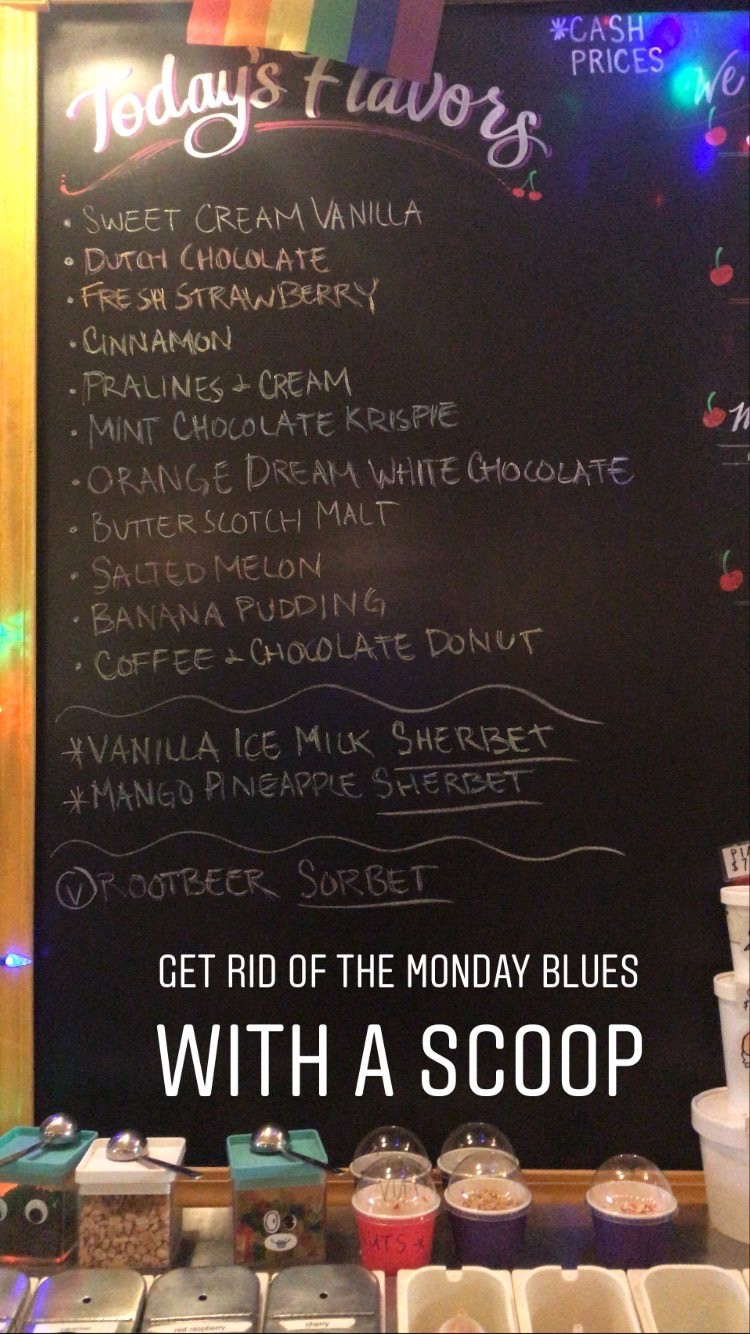 Today's Flavors
*CASH
PRICES
We
• SWEET CREAM VANILLA
• DUTCH CHOCOLATE
• FRESH STRAWBERRY
• CINNAMON
• PRALINES & CREAM
• MINT CHOCOLATE KRISPIE
• ORANGE DREAM WHITE CHOCOLATE
• BUTTERSCOTCH MALT
• SALTED MELON
• BANANA PUDDING
• COFFEE & CHOCOLATE DONUT
*VANILLA ICE MILK SHERBET
*MANGO PINEAPPLE SHERBET
Ⓥ ROOTBEER SORBET
GET RID OF THE MONDAY BLUES
WITH A SCOOP
NUTS *
red raspberry
cherry